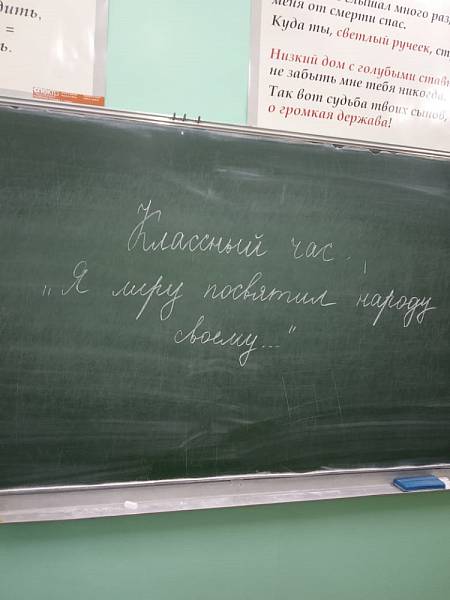 дить,
=
ь.
слышал много раз,
меня от смерти спас.
Куда ты, светлый ручеек, ст
Низкий дом с голубыми став
не забыть мне тебя никогда.
Так вот судьба твоих сынов,
о громкая держава!
Классный час.
„Я лиру посвятил народу
своему..."